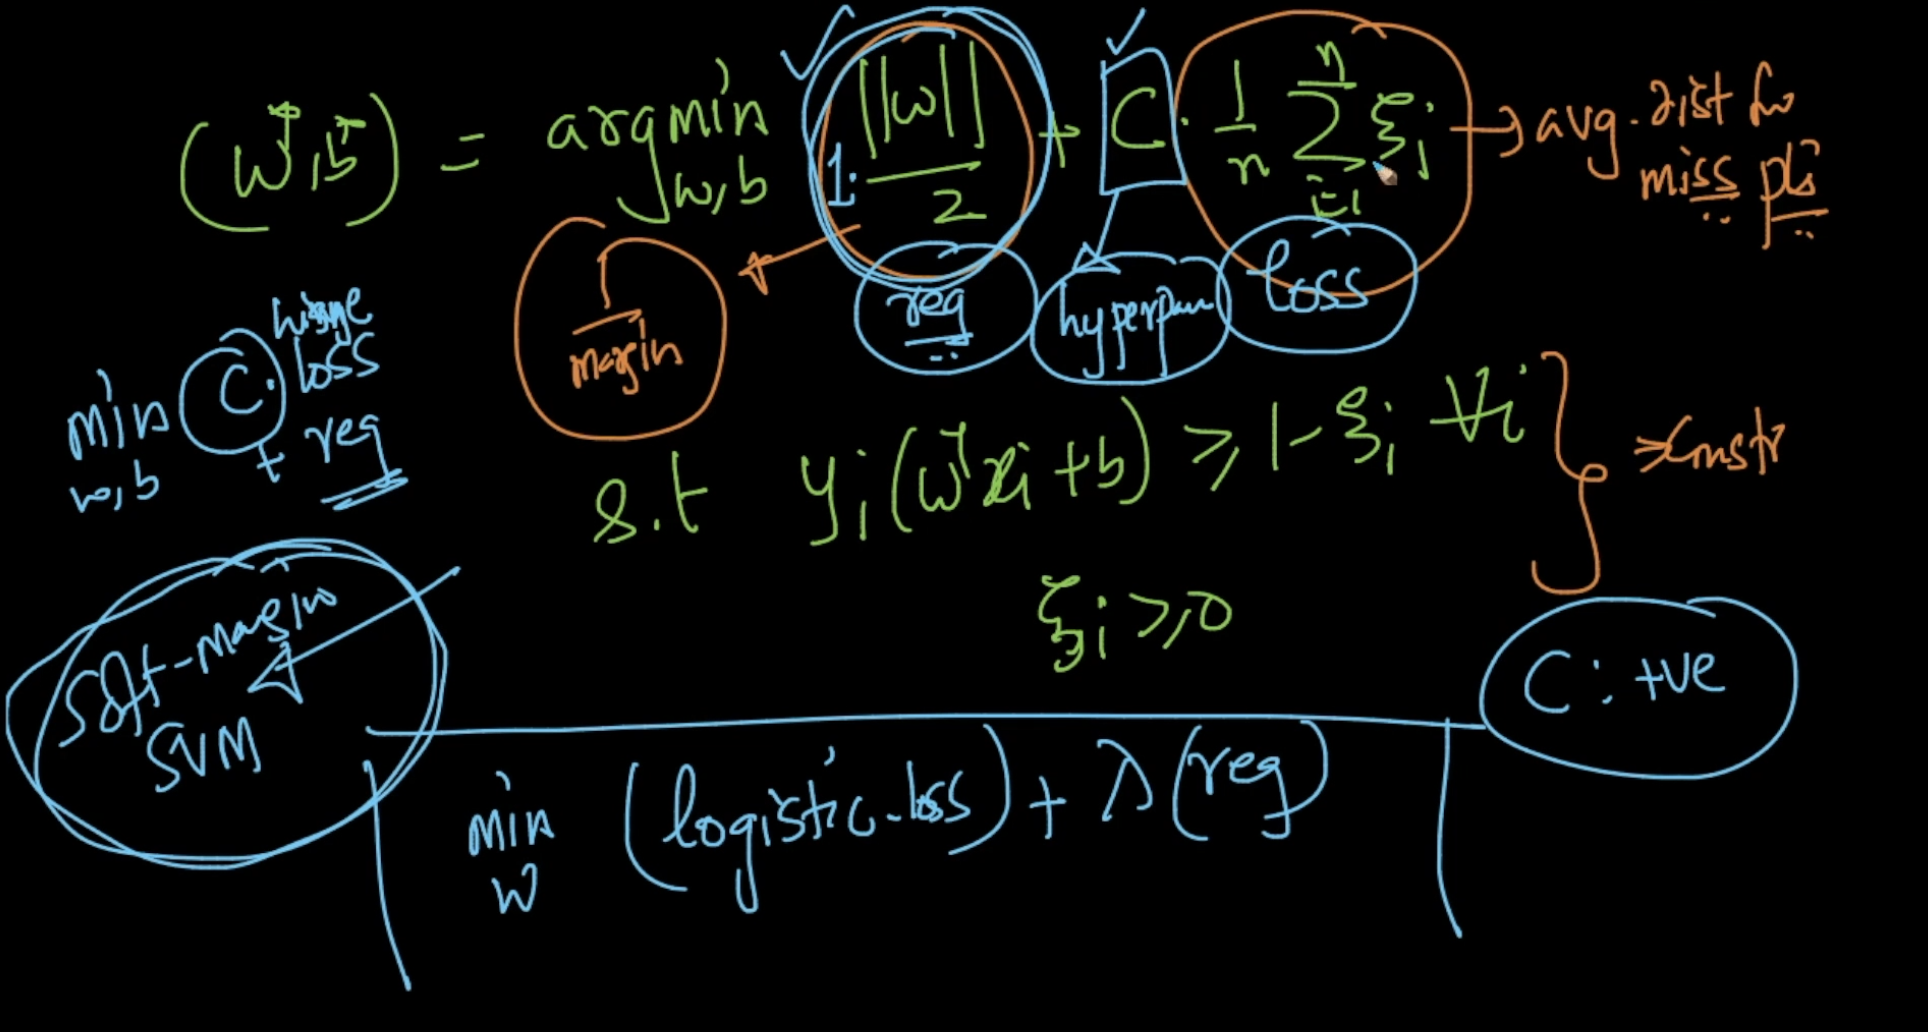 (w*, b*) = argmin w,b 1. ||w||/2 + C . 1/n n∑i=1 ξi → avg. dist for miss pts
1/margin
reg
hyperpam
loss
min w,b C. hinge loss + reg
s.t yi(wᵀxi + b) ≥ 1 - ξi ∀i → Constr
ξi ≥ 0
C: +ve
Soft-margin
SVM
min w (logistic-loss) + λ(reg)